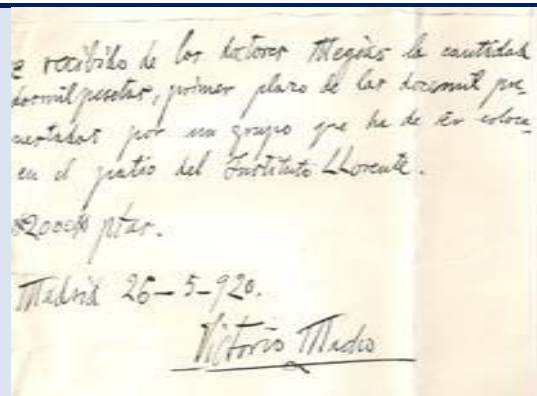 e recibido de los doctores Megías la cantidad
dosmil pesetas, primer plazo de las docemil pre
uestadas por un grupo que ha de ser coloca
en el patio del Instituto Llorente.
#2000# ptas.
Madrid 26-5-920.
Victorio Macho